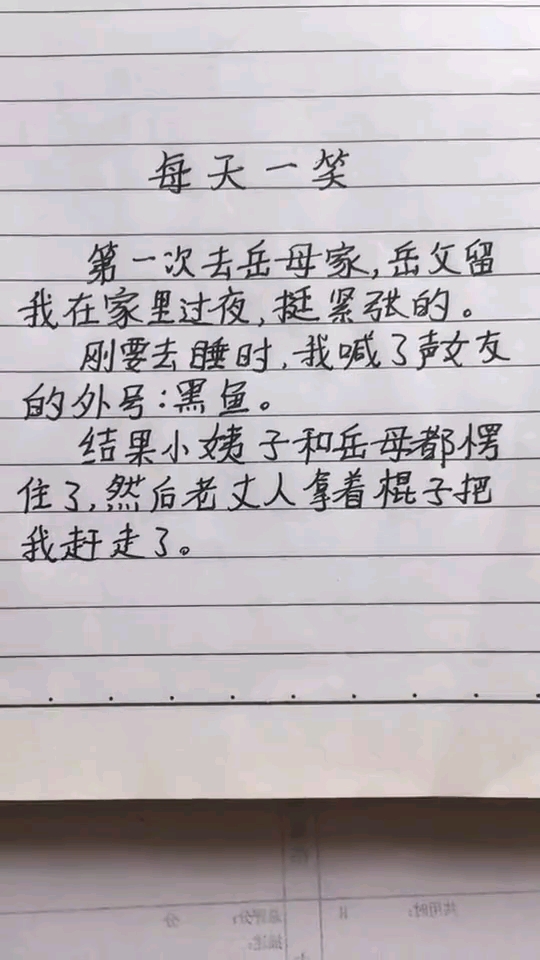 每天一笑
第一次去岳母家,岳父留
我在家里过夜,挺紧张的。
刚要去睡时,我喊了声女友
的外号:黑鱼。
结果小姨子和岳母都愣
住了,然后老丈人拿着棍子把
我赶走了。